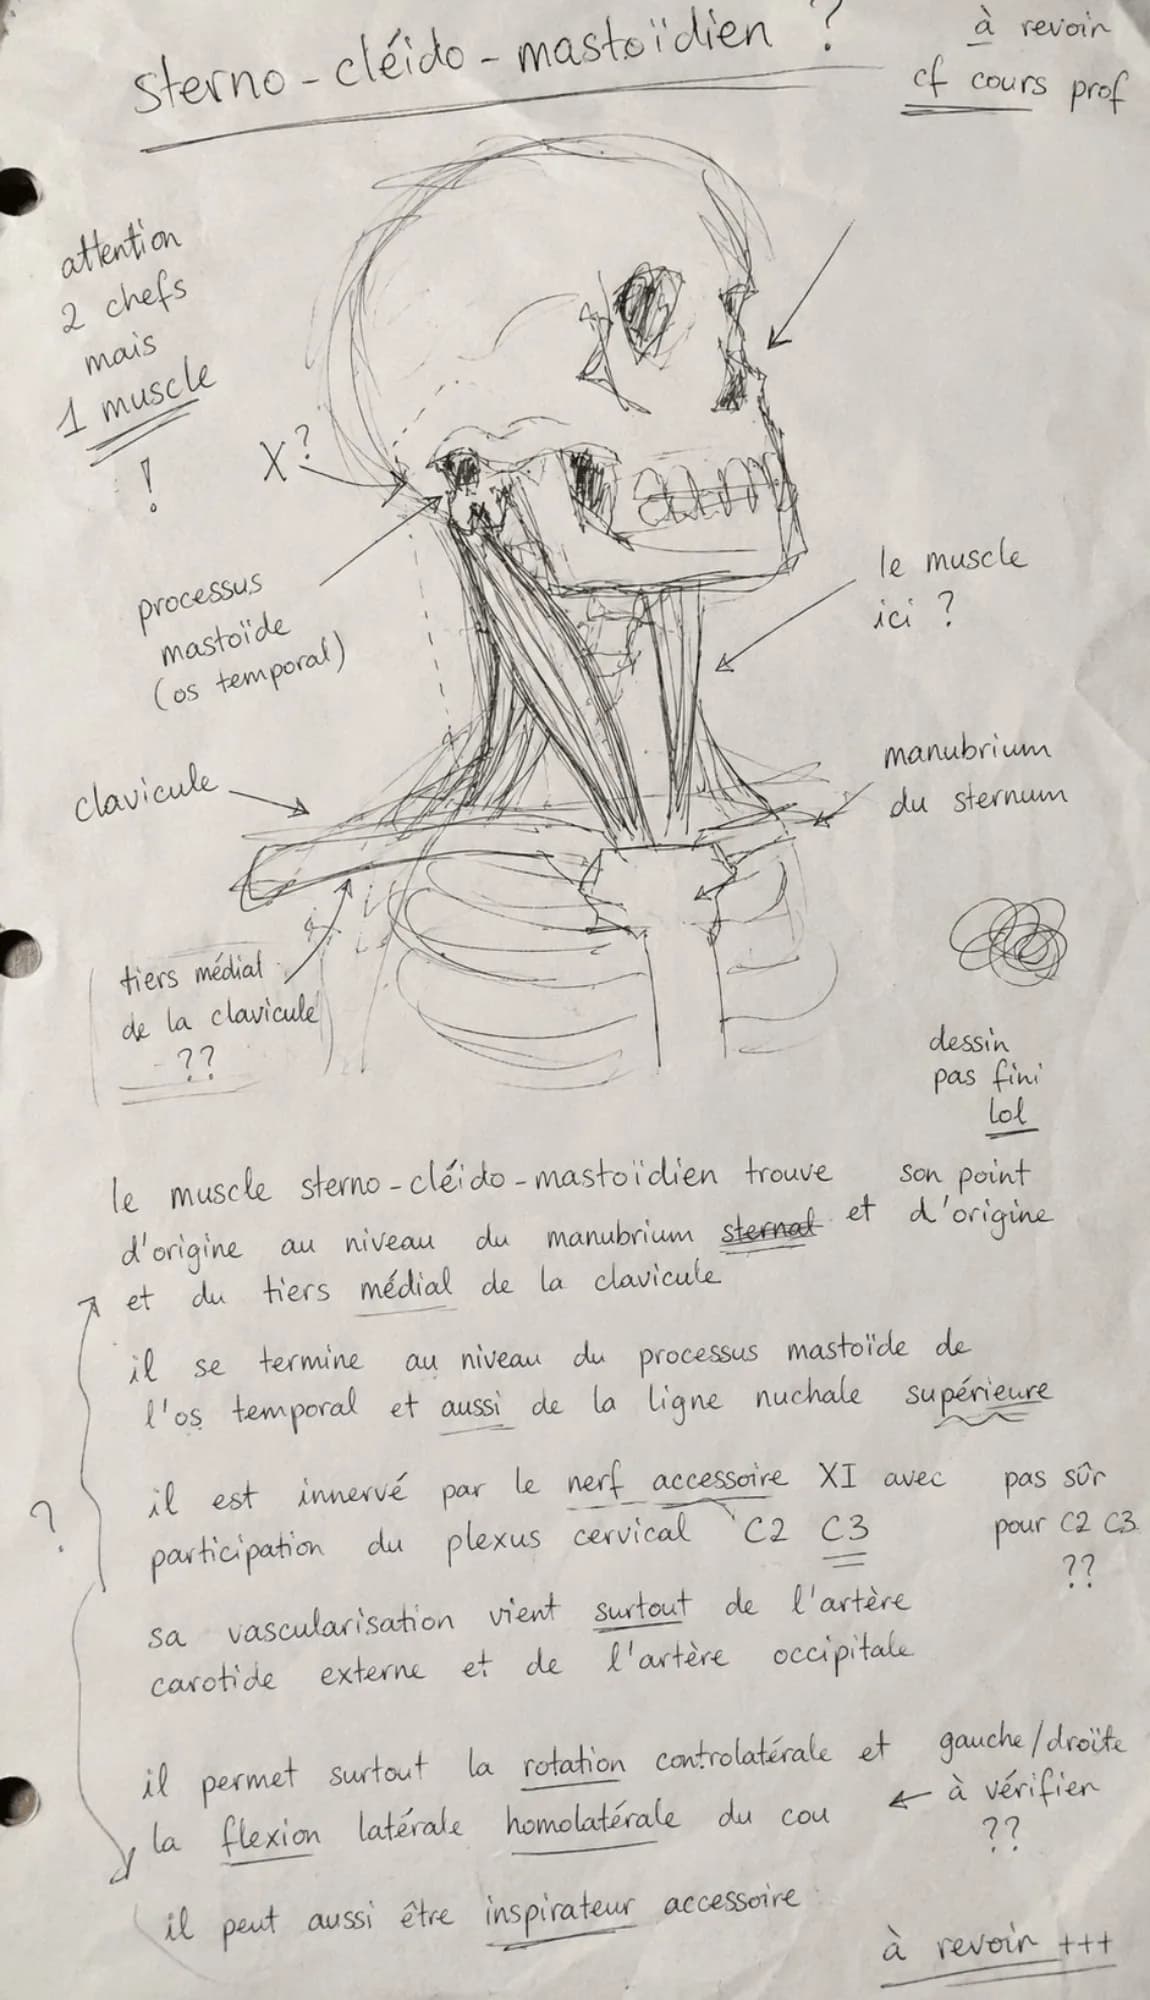 sterno-cléido-mastoïdien ?
à revoir
cf cours prof
attention
2 chefs
mais
1 muscle
!
X?
processus
mastoïde
(os temporal)
le muscle
ici ?
clavicule
manubrium
du sternum
tiers médial
de la clavicule
??
dessin
pas fini
lol
le muscle sterno-cléido-mastoïdien trouve son point
d'origine au niveau du manubrium sternal et d'origine
et du tiers médial de la clavicule
il se termine au niveau du processus mastoïde de
l'os temporal et aussi de la ligne nuchale supérieure
?
il est innervé par le nerf accessoire XI avec
participation du plexus cervical C2 C3
pas sûr
pour C2 C3
??
sa vascularisation vient surtout de l'artère
carotide externe et de l'artère occipitale
il permet surtout la rotation controlatérale et
la flexion latérale homolatérale du cou
gauche/droïte
à vérifier
??
il peut aussi être inspirateur accessoire
à revoir +++